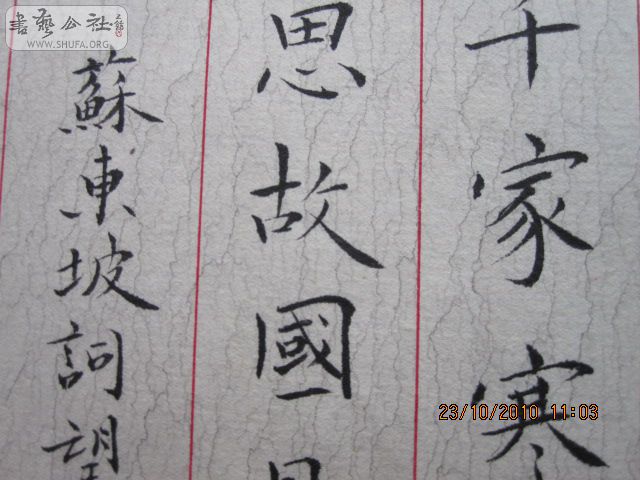 書藝公社
WWW.SHUFA.ORG
千家寒
思故國
蘇東坡詞望
23/10/2010 11:03